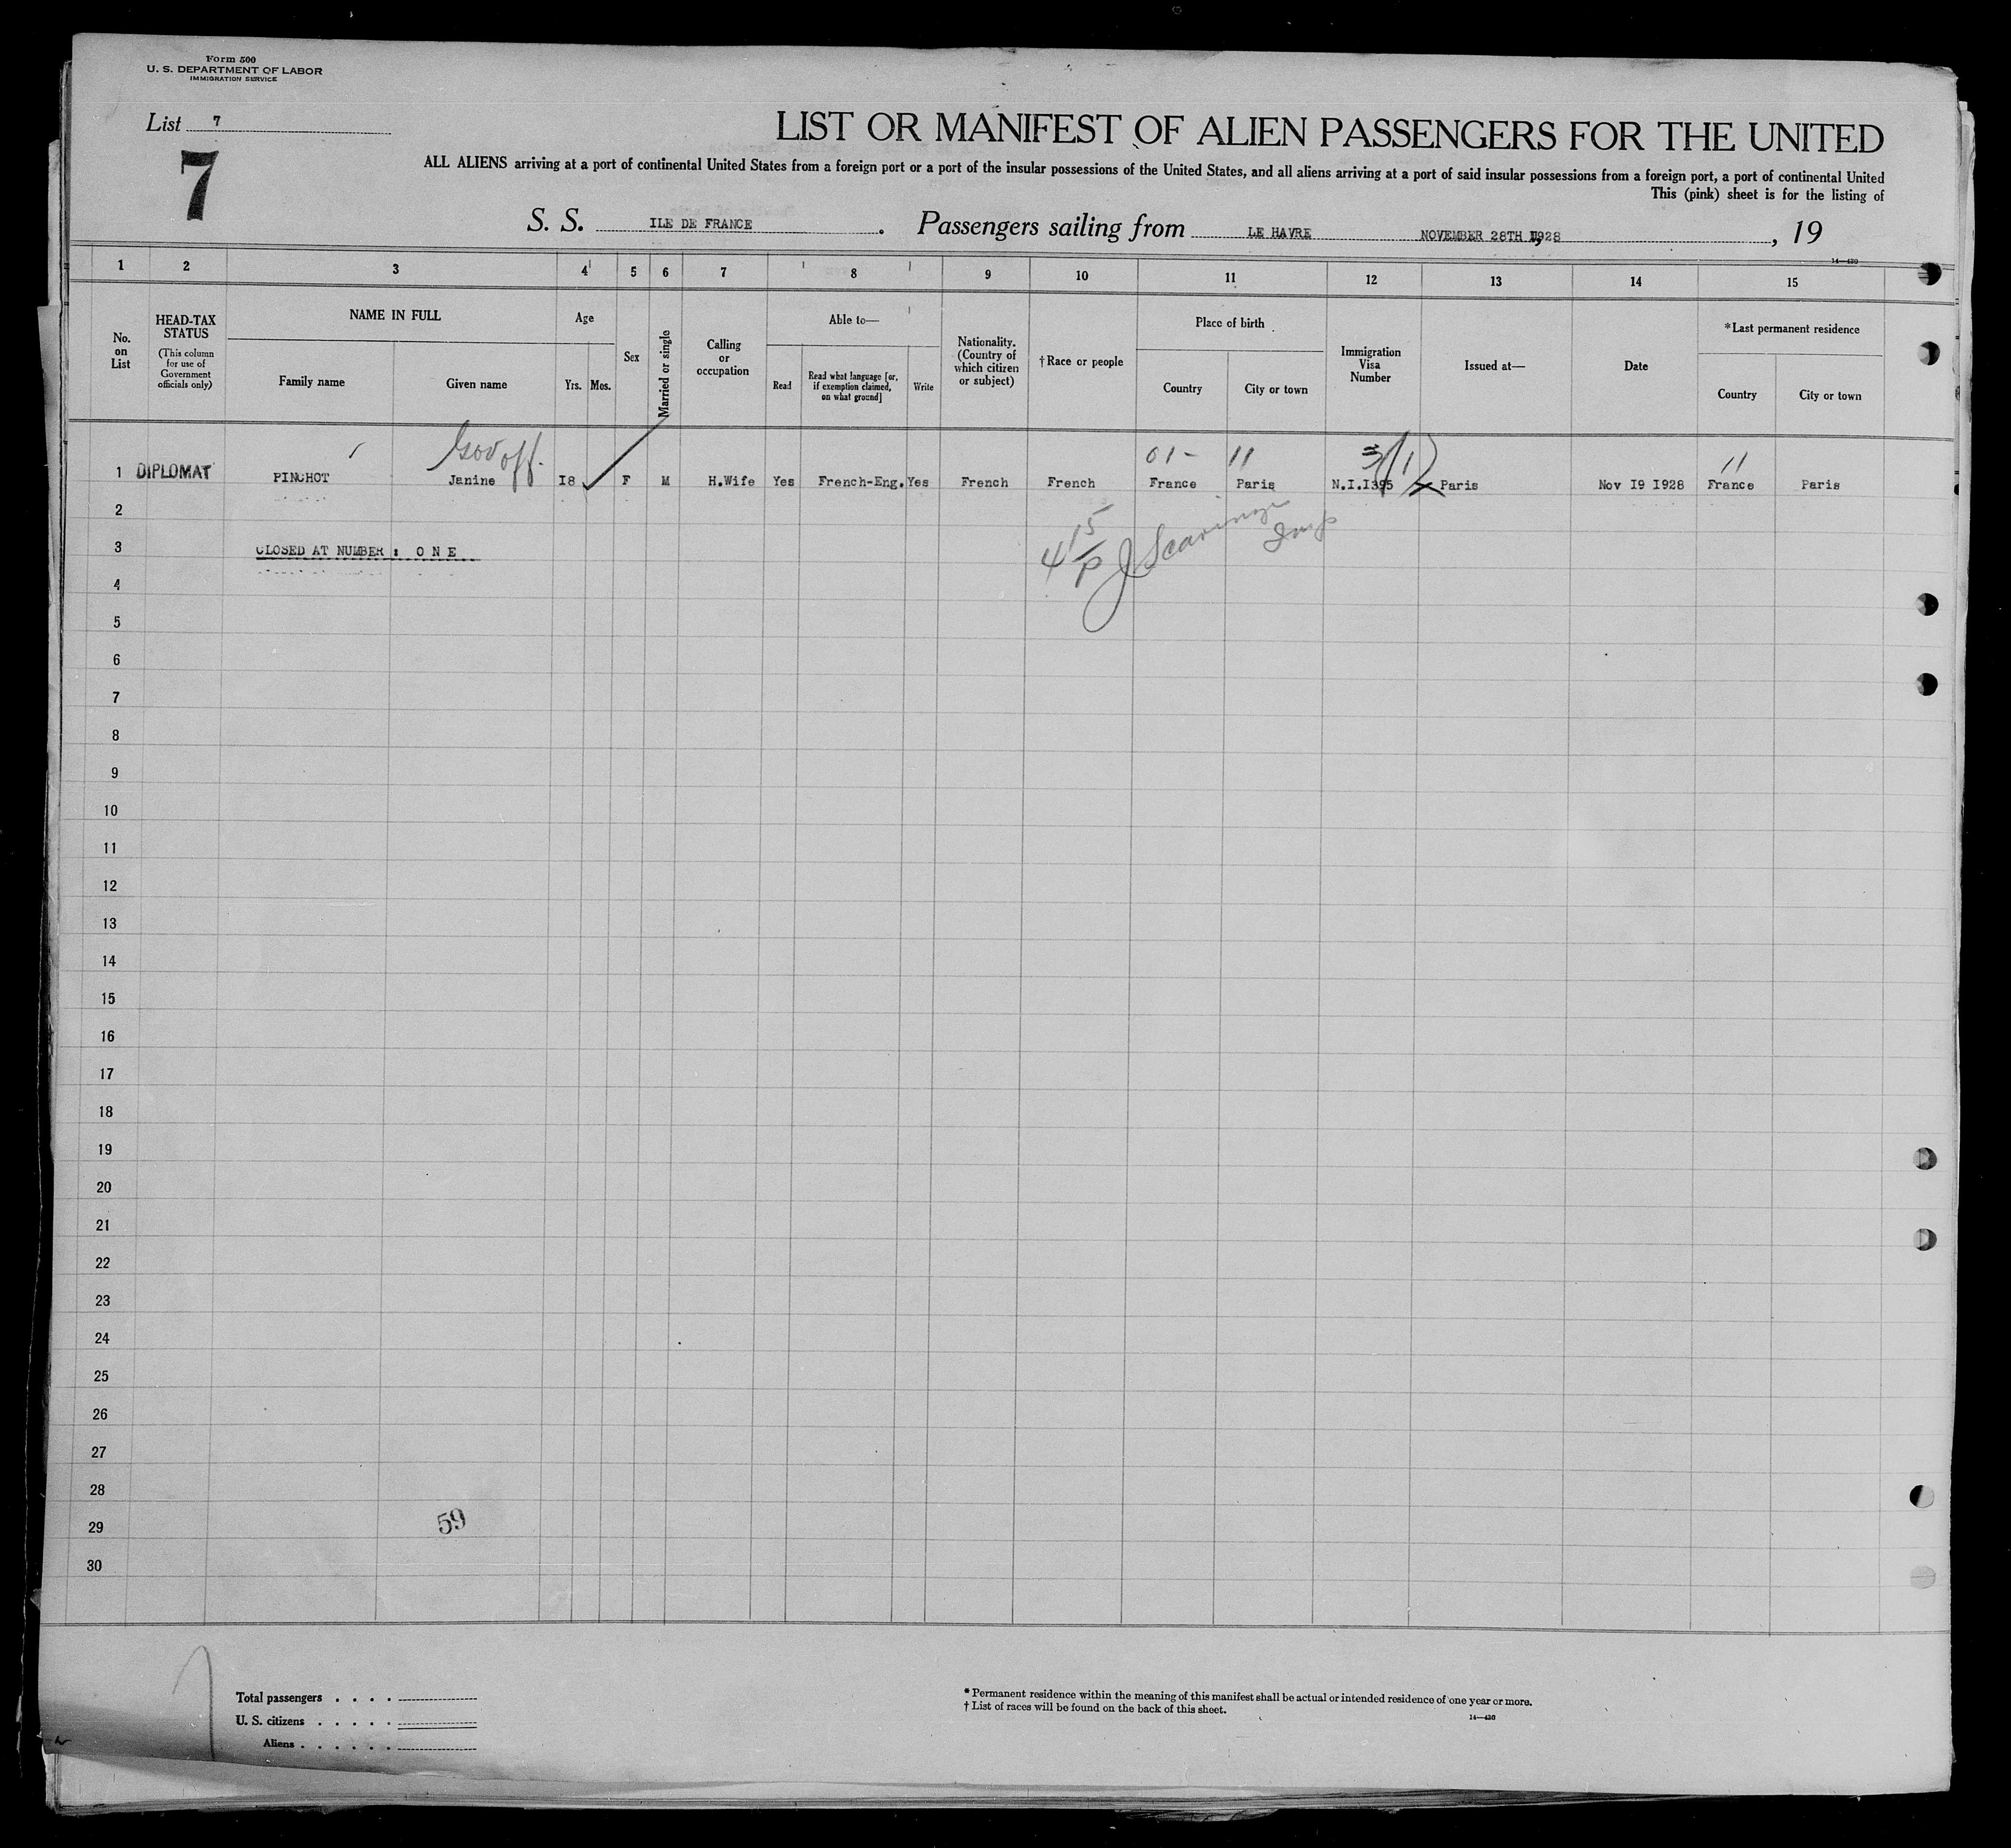 Form 500
U. S. DEPARTMENT OF LABOR
IMMIGRATION SERVICE
List 7
7
LIST OR MANIFEST OF ALIEN PASSENGERS FOR THE UNITED
ALL ALIENS arriving at a port of continental United States from a foreign port or a port of the insular possessions of the United States, and all aliens arriving at a port of said insular possessions from a foreign port, a port of continental United
This (pink) sheet is for the listing of
S. S. ILE DE FRANCE . Passengers sailing from LE HAVRE NOVEMBER 28TH 1928 , 19
14—430
1 2 3 4 5 6 7 8 9 10 11 12 13 14 15
No. on List
HEAD-TAX STATUS
(This column for use of Government officials only)
NAME IN FULL
Family name Given name
Age
Yrs. Mos.
Sex
Married or single
Calling or occupation
Able to—
Read
Read what language [or, if exemption claimed, on what ground]
Write
Nationality. (Country of which citizen or subject)
†Race or people
Place of birth
Country City or town
Immigration Visa Number
Issued at—
Date
*Last permanent residence
Country City or town
Gov off. 01- 11 11
1 DIPLOMAT PINCHOT Janine I8 F M H.Wife Yes French-Eng. Yes French French France Paris N.I.I395 Paris Nov I9 I928 France Paris
2
3 CLOSED AT NUMBER : O N E
4 15 P J Scaringi Insp
4
5
6
7
8
9
10
11
12
13
14
15
16
17
18
19
20
21
22
23
24
25
26
27
28
29 59
30
Total passengers . . . .
U. S. citizens . . . . .
Aliens . . . . . .
* Permanent residence within the meaning of this manifest shall be actual or intended residence of one year or more.
† List of races will be found on the back of this sheet.
14—430